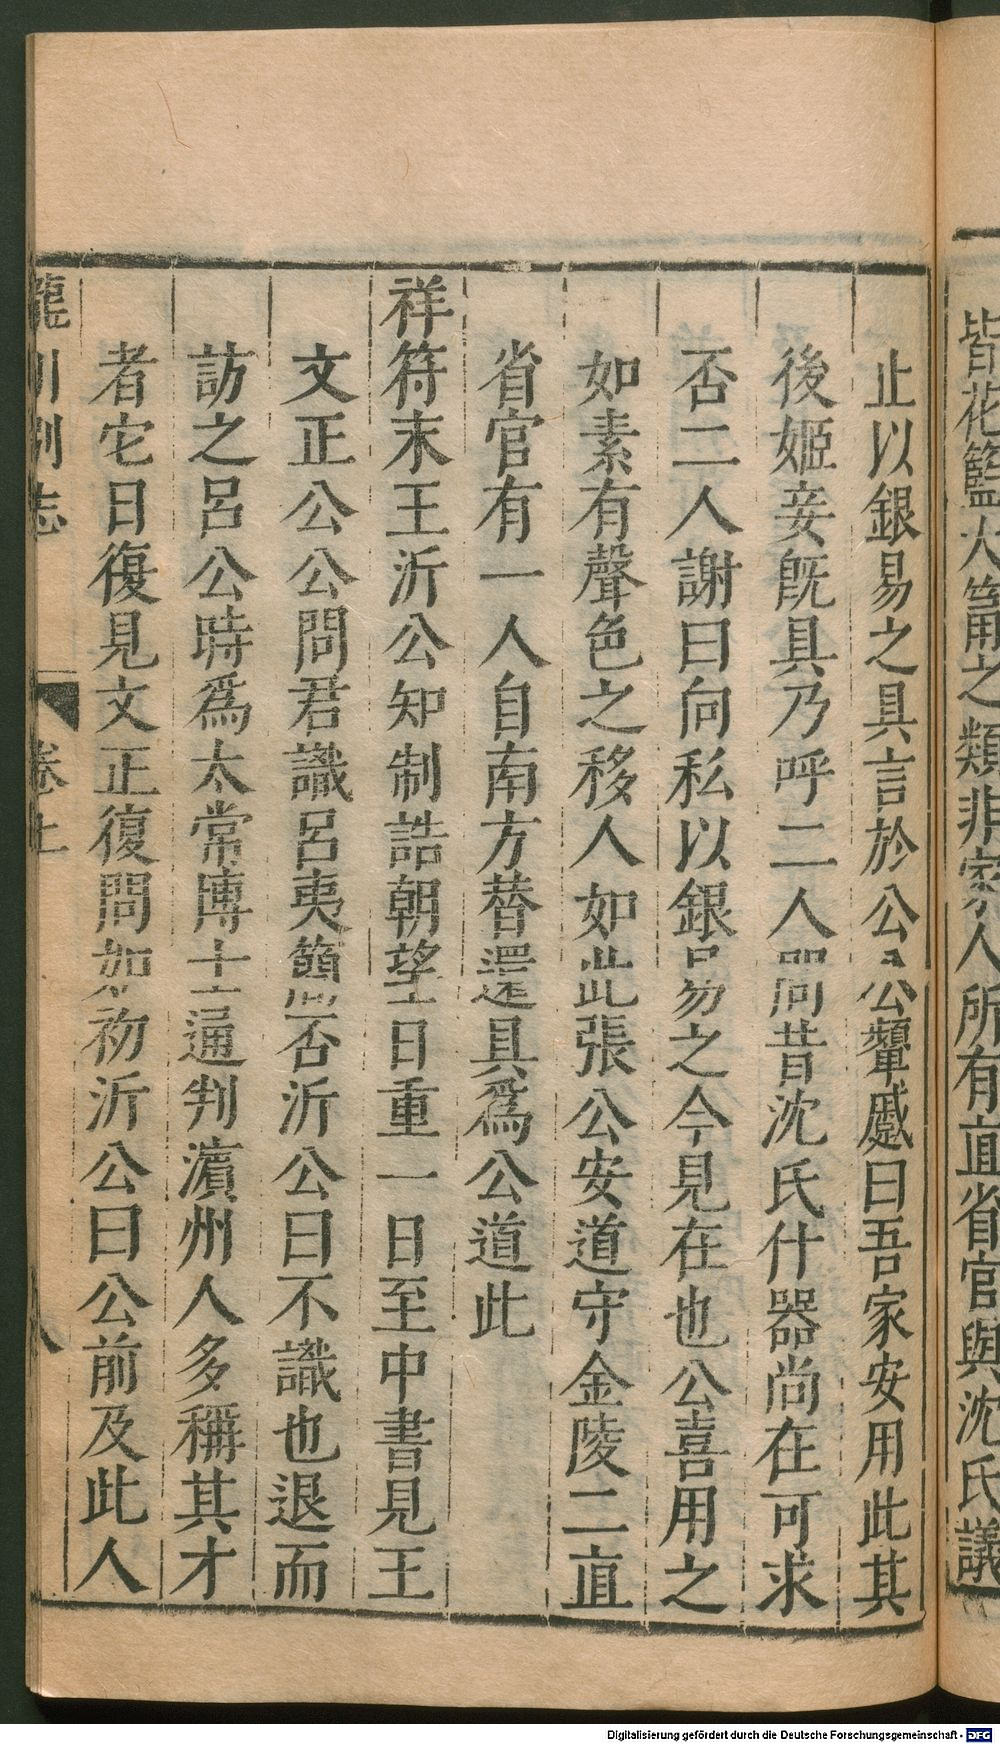 皆花籃火筩之類非家人所有直省官與沈氏議
止以銀易之具言於公公顰蹙曰吾家安用此其
後姬妾既具乃呼二人問昔沈氏什器尚在可求
否二人謝曰向私以銀易之今見在也公喜用之
如素有聲色之移人如此張公安道守金陵二直
省官有一人自南方替還具爲公道此
祥符末王沂公知制誥朝望日重一日至中書見王
文正公公問君識呂夷簡否沂公曰不識也退而
訪之呂公時爲太常博士通判濵州人多稱其才
者它日復見文正復問如初沂公曰公前及此人
龍川別志
卷上
八
Digitalisierung gefördert durch die Deutsche Forschungsgemeinschaft - DFG